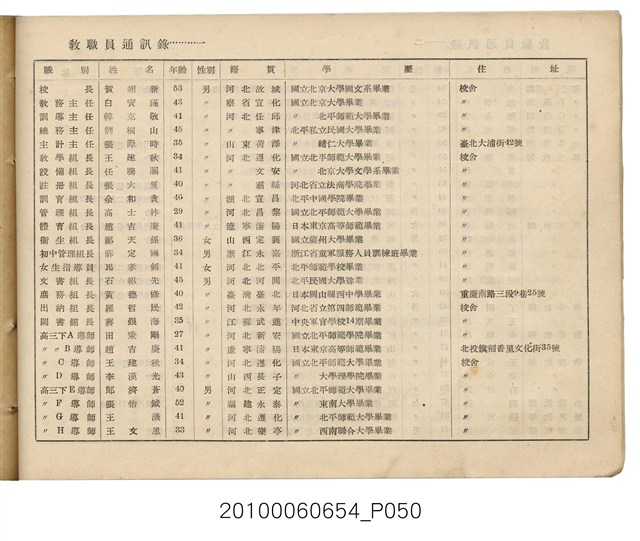 教職員通訊錄………一
職別 姓名 年齡 性別 籍貫 學歷 住址
校長 賀翊新 53 男 河北故城 國立北京大學國文系畢業 校舍
教務主任 白寶瑾 43 〃 察省宣化 國立北京大學畢業 〃
訓導主任 韓克敬 41 〃 河北任邱 〃 〃
總務主任 劉福山 45 〃 〃寧津 北平私立民國大學畢業 〃
主計主任 張際時 35 〃 山東荷澤 〃輔仁大學畢業 臺北大浦街42號
教學組長 王建秋 34 〃 河北遵化 國立北平師範大學畢業 校舍
設備組長 任勝閣 41 〃 〃文安 〃北京大學文學系畢業 〃
註冊組長 張大夏 40 〃 〃霸縣 河北省立法商學院畢業 〃
訓育組長 余和貴 46 〃 湖北宜昌 北平中國學院畢業 〃
管理組長 高士 29 〃 河北昌黎 國立北平師範大學畢業 〃
體育組長 趙吉慶 41 〃 遼寧瀋陽 日本東京高等師範畢業 〃
衞生組長 鄺天孫 36 女 山西定襄 國立蘭州大學畢業 〃
初中管理組長 薛定國 34 男 浙江永嘉 浙江省童軍服務人員訓練班畢業 〃
女生指導員 馮孝釗 41 女 河北北平 北平師範學校畢業 〃
文書組長 石繩先 45 男 河北河間 北平民國大學肄業 〃
庶務組長 黃德修 40 〃 臺灣臺北 日本岡山縣西中學畢業 重慶南路三段9巷25號
出納組長 羅哲民 42 〃 河北永年 河北省立第四師範畢業 校舍
圖書館長 蔣銀海 35 〃 江蘇武進 中央軍官學校14期畢業 〃
高三下A導師 田秉剛 27 〃 河北新安 國立北平師範大學畢業 〃
〃〃B導師 趙吉慶 41 〃 遼寧瀋陽 日本東京高等師範畢業 北投鎮稻香里文化街35號
〃C導師 王建秋 34 〃 河北遵化 國立北平師範大學畢業 校舍
〃D導師 李漢光 43 〃 山西長子 〃大學理學院畢業 〃
高三下E導師 郎濟蒼 40 男 河北正定 國立北平師範大學畢業 〃
〃F導師 張怡鉞 52 〃 福建永泰 〃東南大學畢業 〃
〃G導師 王澂 41 〃 河北 〃北平師範大學畢業 〃
〃H導師 王文思 33 〃 河北樂亭 〃西南聯合大學畢業 〃
20100060654_P050